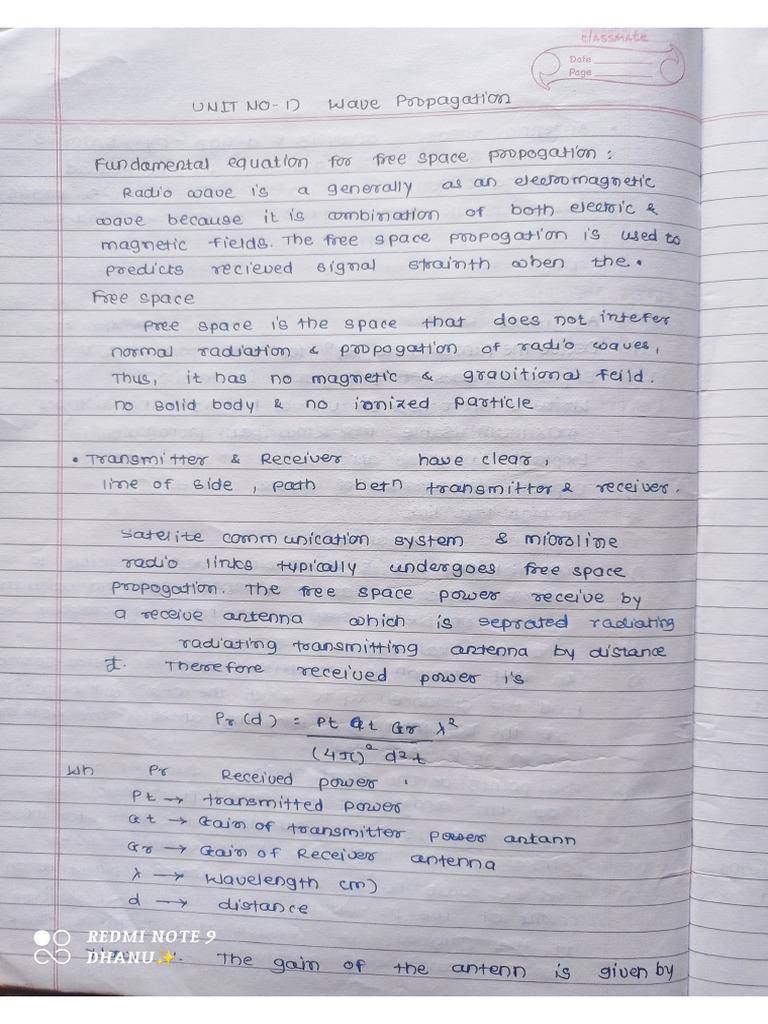 classmate
Date
Page
UNIT NO- Wave Propagation
Fundamental equation for free space propogation :
Radio wave is a generally as an electromagnetic
wave because it is combination of both electric &
magnetic fields. The free space propogation is used to
predicts recieved signal strainth when the.
Free space
Free space is the space that does not intefer
normal radiation & propogation of radio waves,
Thus, it has no magnetic & gravitional feild.
no solid body & no ionized particle
• Transmitter & Receiver have clear,
line of side, path betn transmittor & receiver.
Satelite communication system & microline
radio links typically undergoes free space
propogation. The free space power receive by
a receive antenna which is seprated radiating
radiating transmitting antenna by distance
d. Therefore received power is
Pr(d) = Pt Gt Gr λ²
(4π)² d² t
Wh Pr Received power.
Pt → transmitted power
Gt → Gain of transmitter power antann
Gr → Gain of Receiver antenna
λ → Wavelength cm)
d → distance
The gain of the antenn is given by
REDMI NOTE 9
DHANU✨